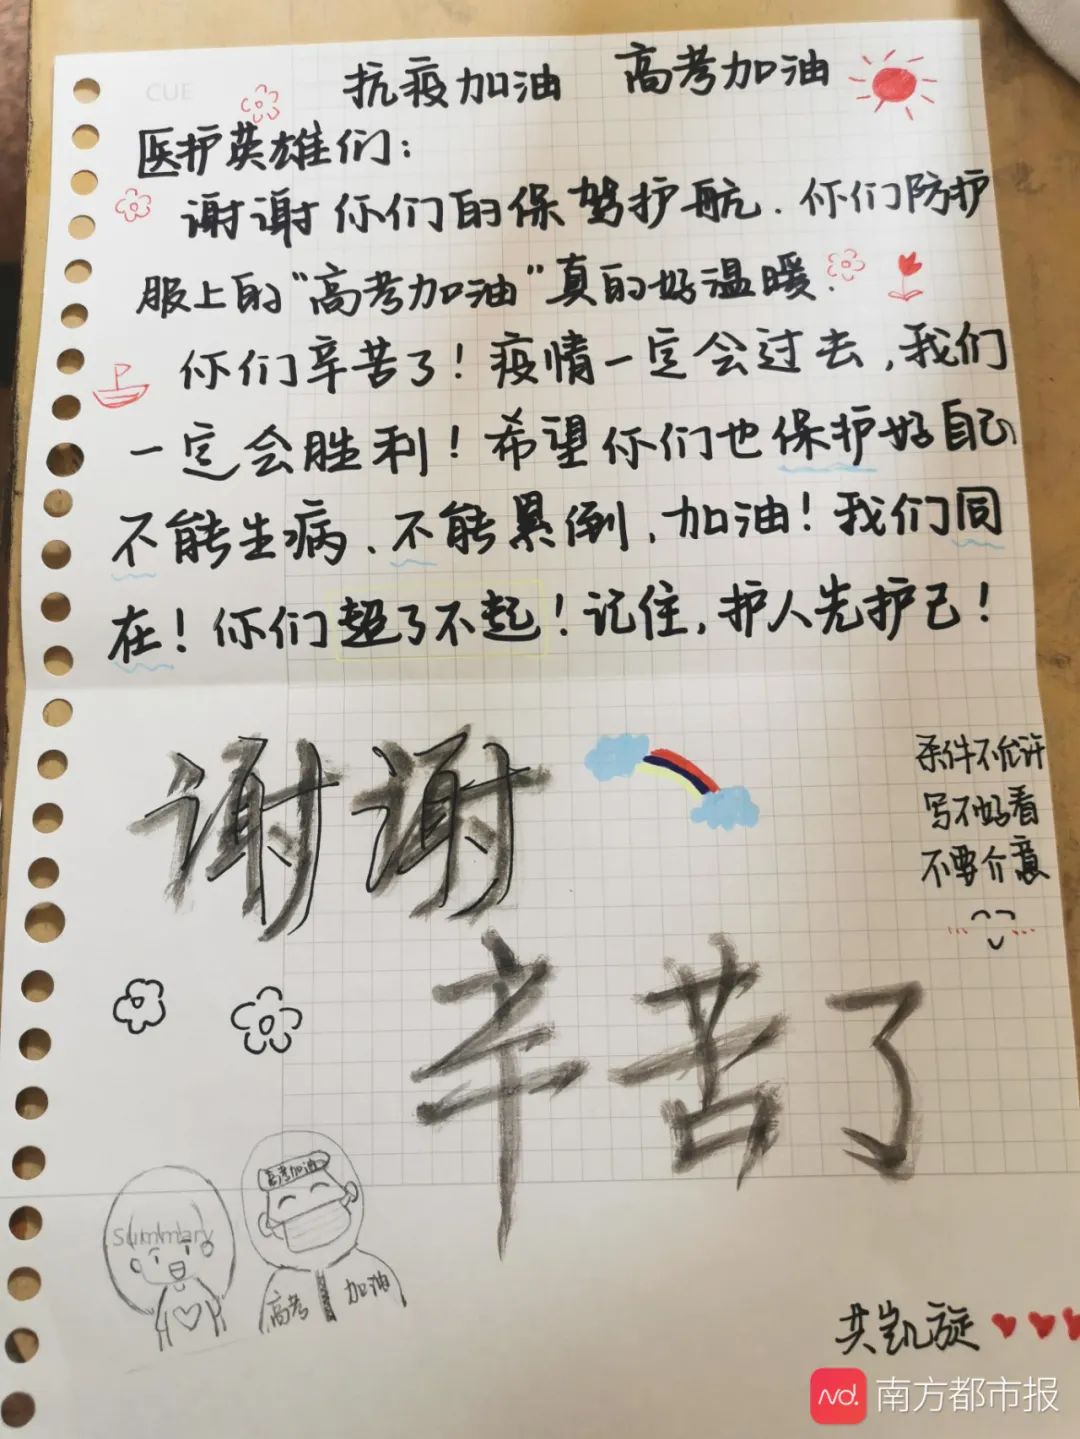 CUE
抗疫加油 高考加油
医护英雄们：
谢谢你们的保驾护航.你们防护
服上的“高考加油”真的好温暖.
你们辛苦了！疫情一定会过去，我们
一定会胜利！希望你们也保护好自己
不能生病、不能累倒，加油！我们同
在！你们超了不起！记住，护人先护己！
谢谢
条件不允许
写不好看
不要介意
辛苦了
高考加油
Summary
高考 加油
共凯旋
南方都市报